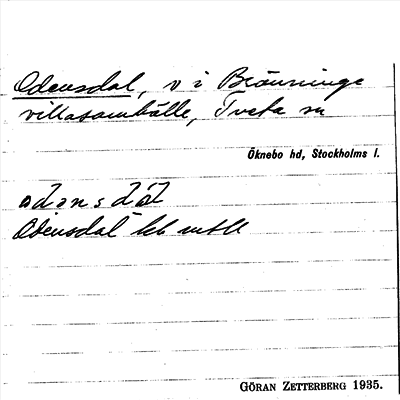 Odensdal, v i Bränninge
villasamhälle, Tveta sn
Öknebo hd, Stockholms l.
odənsdȧl
Odensdal
GÖRAN ZETTERBERG 1935.